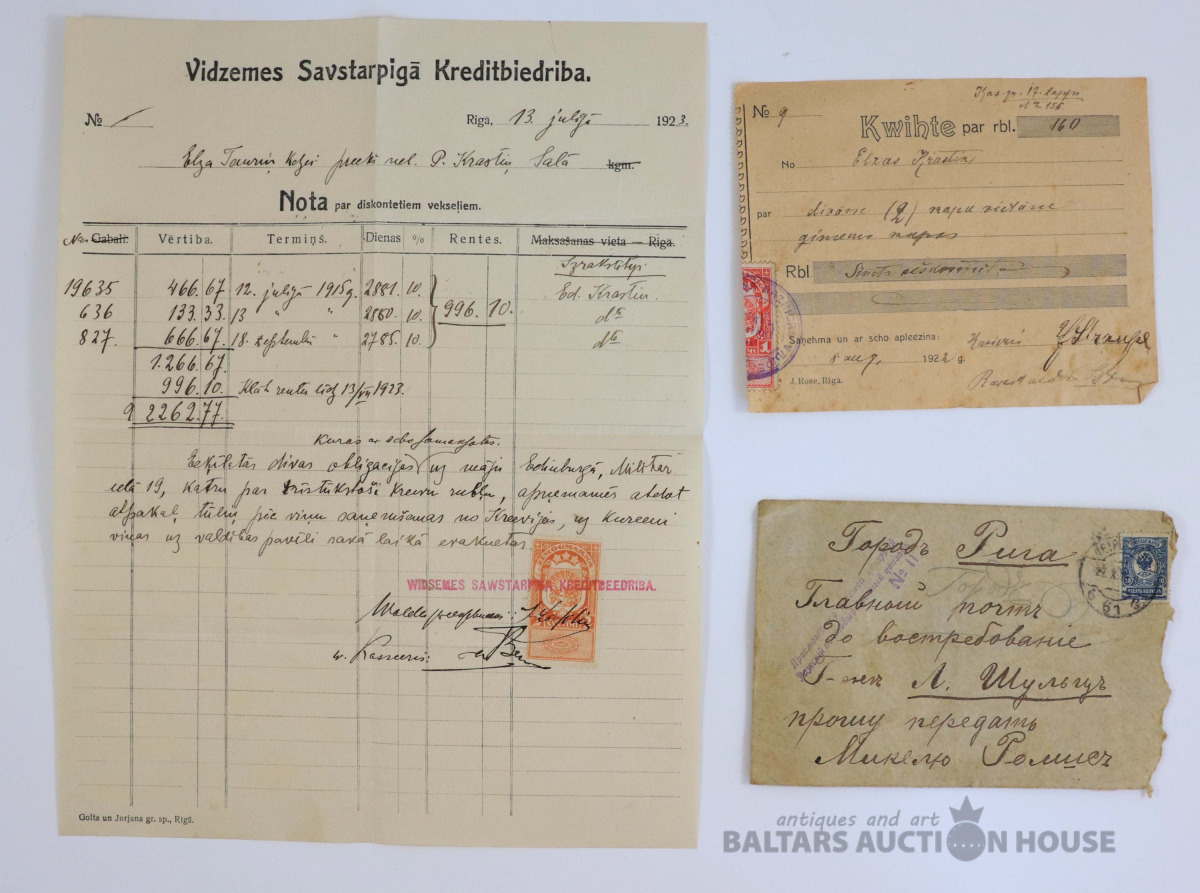 Vidzemes Savstarpigā Kreditbiedriba.
№
Rigā, 13. julijā 1923.
Elza Tauriņ P. Krastiņ Salā kgm.
Nota par diskontetiem vekseļiem.
Nr. Gabali. Vērtiba. Termiņš. Dienas % Rentes. Maksašanas vieta — Rigā.
Izrakstitaji
19635 466.67 12. julijā 1915g. 2881. 10. Ed. Krastin.
636 133.33 13 " " 2880. 10. 996.10. do
827. 666.67. 18. septembri " 2785. 10. do
1.266.67.
996.10. Klāt rentes lidz 13/VII 1923.
2262.77.
Kuras ar scho samaksatas.
Eeķilatās divas obligacijas uz māju Edinburgā, Militar
ielā 19, katru par tristukstoši kreevu rubļu, apņemamēs atdot
atpakaļ tuliņ pēc viņu saņemšanas no Kreevijas, uz kureeni
viņas uz valdibas pavēli savā laikā evakuetas
WIDSEMES SAWSTARPIGA KREDITBEEDRIBA.
Golta un Jurjana gr. sp., Rigā.
№ 9
Kas. gr. 17. lappu
№ 155
Kwihte par rbl. 160
No Elzas Krastin
par divām (2) kapu vietām
ģimenes kapos
Rbl Simts
Saņehma un ar scho apleezina:
1922 g.
J. Rose, Rigā.
Городъ Рига
Главный почтъ
до востребованіе
Г-жѣ Л. Шульцъ
прошу передать
Микелю
№ 11
61
antiques and art
BALTARS AUCTION HOUSE